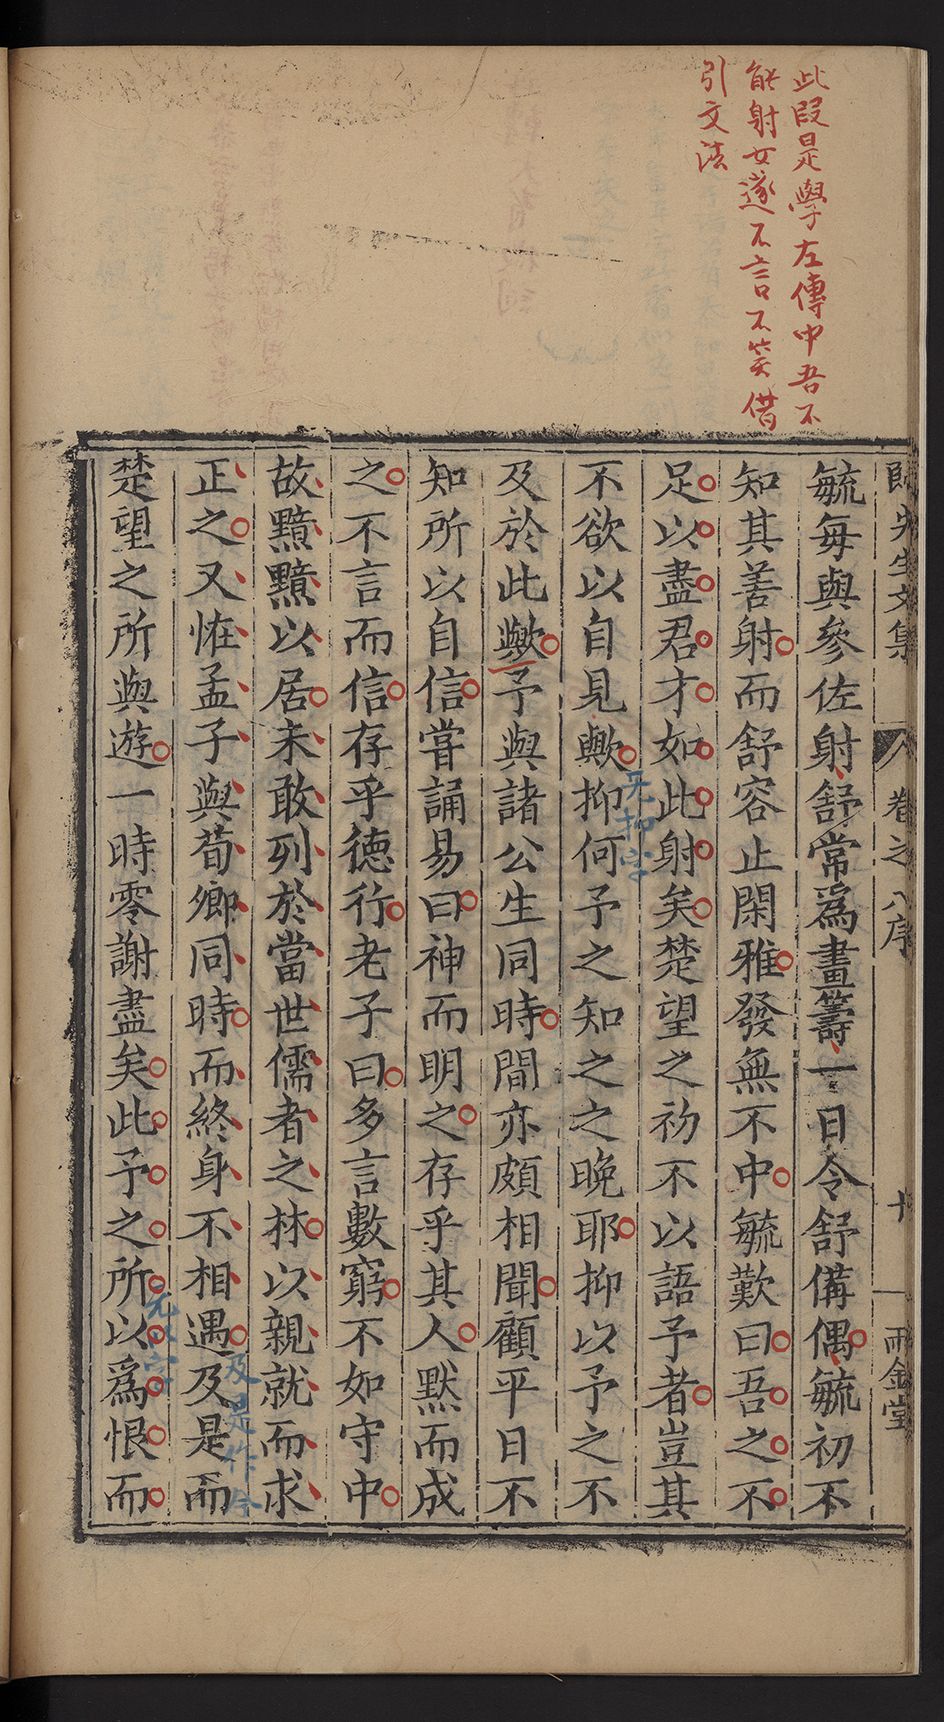 此段是學左傳中吾不
能射女遂不言不笑借
引文法
先生文集
卷之八序
十
雨金堂
毓每與參佐射舒常爲畫籌一日令舒備偶毓初不
知其善射而舒容止閑雅發無不中毓歎曰吾之不
足以盡君才如此射矣楚望之初不以語予者豈其
不欲以自見歟抑何予之知之之晚耶抑以予之不
无抑字
及於此歟予與諸公生同時間亦頗相聞顧平日不
知所以自信嘗誦易曰神而明之存乎其人默而成
之不言而信存乎德行老子曰多言數窮不如守中
故黯黯以居未敢列於當世儒者之林以親就而求
正之又恠孟子與荀卿同時而終身不相遇及是而
及是作今
楚望之所與遊一時零謝盡矣此予之所以爲恨而
无以字